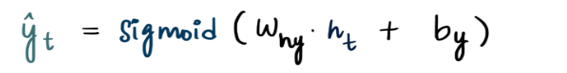 ŷt = Sigmoid (Why · ht + by)